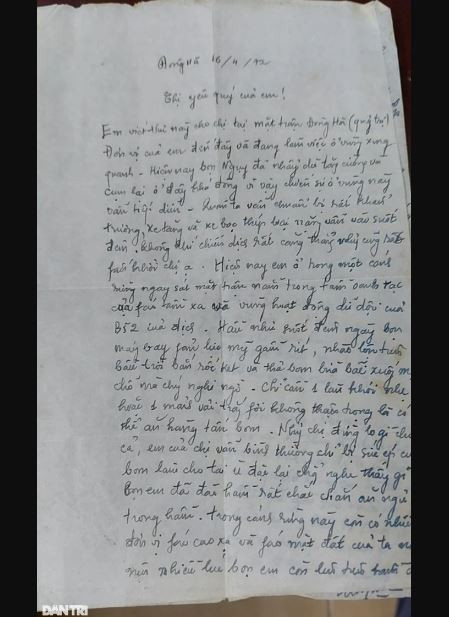 Đông Hà 16/4/72
Chị yêu quý của em!
Em viết thư này cho chị tại mặt trận Đông Hà (quảng trị)
Đơn vị của em đến đây và đang làm việc ở vùng xung
quanh - Hiện nay bọn Ngụy đã nhảy dù tăng cường và
cụm lại ở đây khá đông vì vậy chiến sự ở vùng này
vẫn tiếp diễn - Quân ta vẫn chuẩn bị rất khẩn
trương, xe tăng và xe bọc thép loại nặng vẫn vào suốt
đêm. không khí chiến dịch rất căng thẳng nhưng cũng rất
chị ạ. Hiện nay em ở trong một cánh
rừng ngay sát mặt trận nằm trong tầm oanh tạc
của pháo tầm xa và vùng hoạt động dữ dội của
B52 của địch. Hầu như suốt đêm ngày bọn
máy bay mỹ gầm rít, nhào lộn trên
bầu trời bắn rốc két và thả bom bừa bãi xuống
chỗ mà chúng nghi ngờ. Chỉ cần 1 làn khói nhẹ
hoặc 1 mảnh vải trắng phơi không thận trọng là có
thể ăn hàng tấn bom. Nhưng chị đừng lo gì
cả, em của chị vẫn bình thường chỉ bị sức ép
bom làm cho tai ù đặc lại chả nghe thấy gì
Bọn em đã đào hầm rất chắc chắn ăn ngủ
trong hầm. trong cánh rừng này còn có nhiều
đơn vị pháo cao xạ và pháo mặt đất của ta
nên nhiều lúc bọn em còn
DÂN TRÍ